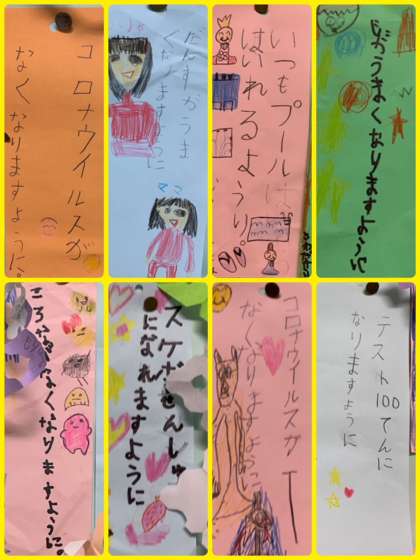 コロナウイルスが
なくなりますように
だんすがうま
くなりますように
ママ
いつもプールは
はいれるように。
じがうまくなりますように
ころながなくなりますように。
スケボせんしゅ
になれますように
コロナウイルスが
なくなりますように
テスト100てんに
なりますように